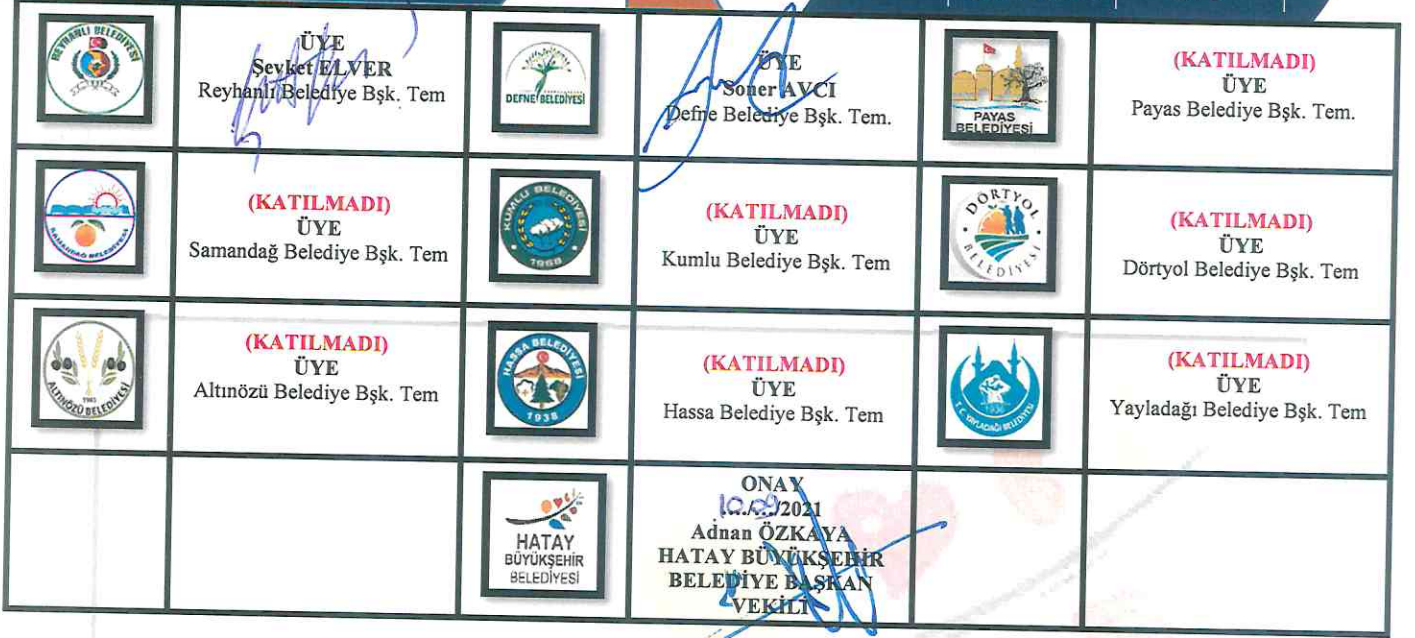 REYHANLI BELEDİYESİ
ÜYE
Şevket ELVER
Reyhanlı Belediye Bşk. Tem
DEFNE BELEDİYESİ
ÜYE
Soner AVCI
Defne Belediye Bşk. Tem.
PAYAS
BELEDİYESİ
(KATILMADI)
ÜYE
Payas Belediye Bşk. Tem.
SAMANDAĞ BELEDİYESİ
(KATILMADI)
ÜYE
Samandağ Belediye Bşk. Tem
KUMLU BELEDİYESİ
1968
(KATILMADI)
ÜYE
Kumlu Belediye Bşk. Tem
DÖRTYOL
BELEDİYESİ
(KATILMADI)
ÜYE
Dörtyol Belediye Bşk. Tem
ALTINÖZÜ BELEDİYESİ
(KATILMADI)
ÜYE
Altınözü Belediye Bşk. Tem
HASSA BELEDİYESİ
1938
(KATILMADI)
ÜYE
Hassa Belediye Bşk. Tem
1936
T.C. YAYLADAĞI BELEDİYESİ
(KATILMADI)
ÜYE
Yayladağı Belediye Bşk. Tem
HATAY
BÜYÜKŞEHİR
BELEDİYESİ
ONAY
10.09/2021
Adnan ÖZKAYA
HATAY BÜYÜKŞEHİR
BELEDİYE BAŞKAN
VEKİLİ